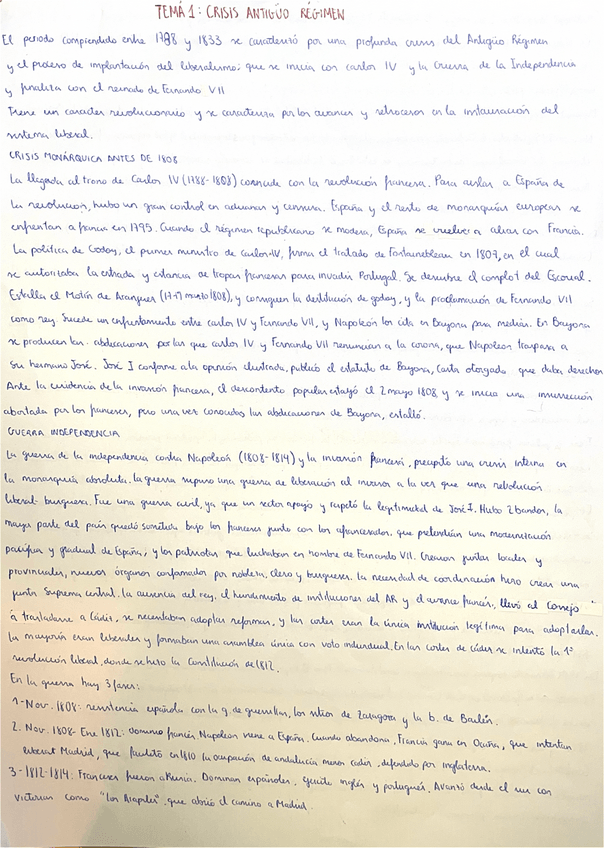 TEMA 1: CRISIS ANTIGÜO RÉGIMEN
El periodo comprendido entre 1788 y 1833 se caracterizó por una profunda crisis del Antigüo Régimen
y el proceso de implantación del liberalismo; que se inicia con Carlos IV y la Guerra de la Independencia
y finaliza con el reinado de Fernando VII
Tiene un caracter revolucionario y se caracteriza por los avances y retrocesos en la instauración del
sistema liberal.
CRISIS MONÁRQUICA ANTES DE 1808
La llegada al trono de Carlos IV (1788-1808) coincide con la revolución francesa. Para aislar a España de
la revolución, hubo un gran control en aduanas y censura. España y el resto de monarquías europeas se
enfrentan a Francia en 1795. Cuando el régimen republicano se modera, España se vuelve a aliar con Francia.
La política de Godoy, el primer ministro de Carlos IV, firma el tratado de Fontainebleau en 1807, en el cual
se autorizaba la entrada y estancia de tropas francesas para invadir Portugal. Se descubre el complot del Escorial.
Estalla el Motín de Aranjuez (17-19 marzo 1808), y consiguen la destitución de godoy, y la proclamación de Fernando VII
como rey. Sucede un enfrentamiento entre carlos IV y Fernando VII, y Napoleón los cita en Bayona para mediar. En Bayona
se producen las abdicaciones por las que carlos IV y Fernando VII renuncian a la corona, que Napoleon traspasa a
su hermano José. José I conforme a la opinión ilustrada, publicó el estatuto de Bayona, carta otorgada que daba derechos
Ante la evidencia de la invasión francesa, el descontento popular estalló el 2 mayo 1808 y se inicia una insurrección
abortada por los franceses, pero una vez conocidas las abdicaciones de Bayona, estalló.
GUERRA INDEPENDENCIA
La guerra de la independencia contra Napoleón (1808-1814) y la invasión francesa, precipitó una crisis interna en
la monarquía absoluta. La guerra supuso una guerra de liberación al invasor a la vez que una revolución
liberal-burguesa. Fue una guerra civil, ya que un sector apoyó y respetó la legitimidad de José I. Hubo 2 bandos, la
mayor parte del país quedó sometida bajo los franceses junto con los afrancesados, que pretendían una modernización
pacífica y gradual de España, y los patriotas que luchaban en nombre de Fernando VII. Crearon juntas locales y
provinciales, nuevos órganos conformados por nobleza, clero y burgueses. La necesidad de coordinación hizo crear una
junta Suprema central. La ausencia del rey, el hundimiento de instituciones del AR y el avance francés, llevó al Consejo
a trasladarse a Cádiz, se necesitaban adoptar reformas, y las cortes eran la única institución legítima para adoptarlas.
La mayoría eran liberales y formaban una asamblea única con voto individual. En las cortes de cádiz se intentó la 1ª
revolución liberal, donde se hizo la Constitución de 1812.
En la guerra hay 3 fases:
1-Nov. 1808: resistencia española con la g. de guerrillas, los sitios de Zaragoza y la b. de Bailén.
2. Nov. 1808- Ene 1812: dominio francés, Napoleon viene a España. Cuando abandona, Francia gana en Ocaña, que intentan
liberar Madrid, que facilitó en 1810 la ocupación de andalucía menos cadiz, defendido por inglaterra.
3-1812-1814: Franceses fueron a Rusia. Dominan españoles. Ejército inglés y portugués. Avanzó desde el sur con
victorias como "los Arapiles", que abrió el camino a Madrid.